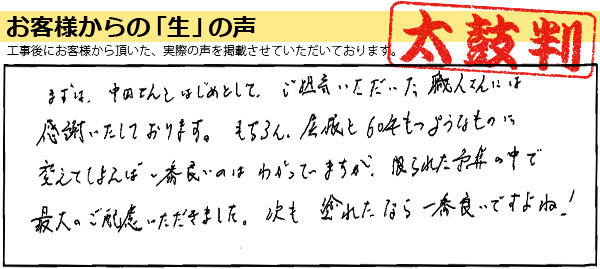 お客様からの「生」の声
工事後にお客様から頂いた、実際の声を掲載させていただいております。
太鼓判
まずは、中田さんをはじめとして、ご担当いただいた職人さんには
感謝いたしております。もちろん、屋根を60年もつようなものに
変えてしまえば一番良いのはわかっていますが、限られた予算の中で
最大のご配慮いただきました。次も塗れたなら一番良いですよね!